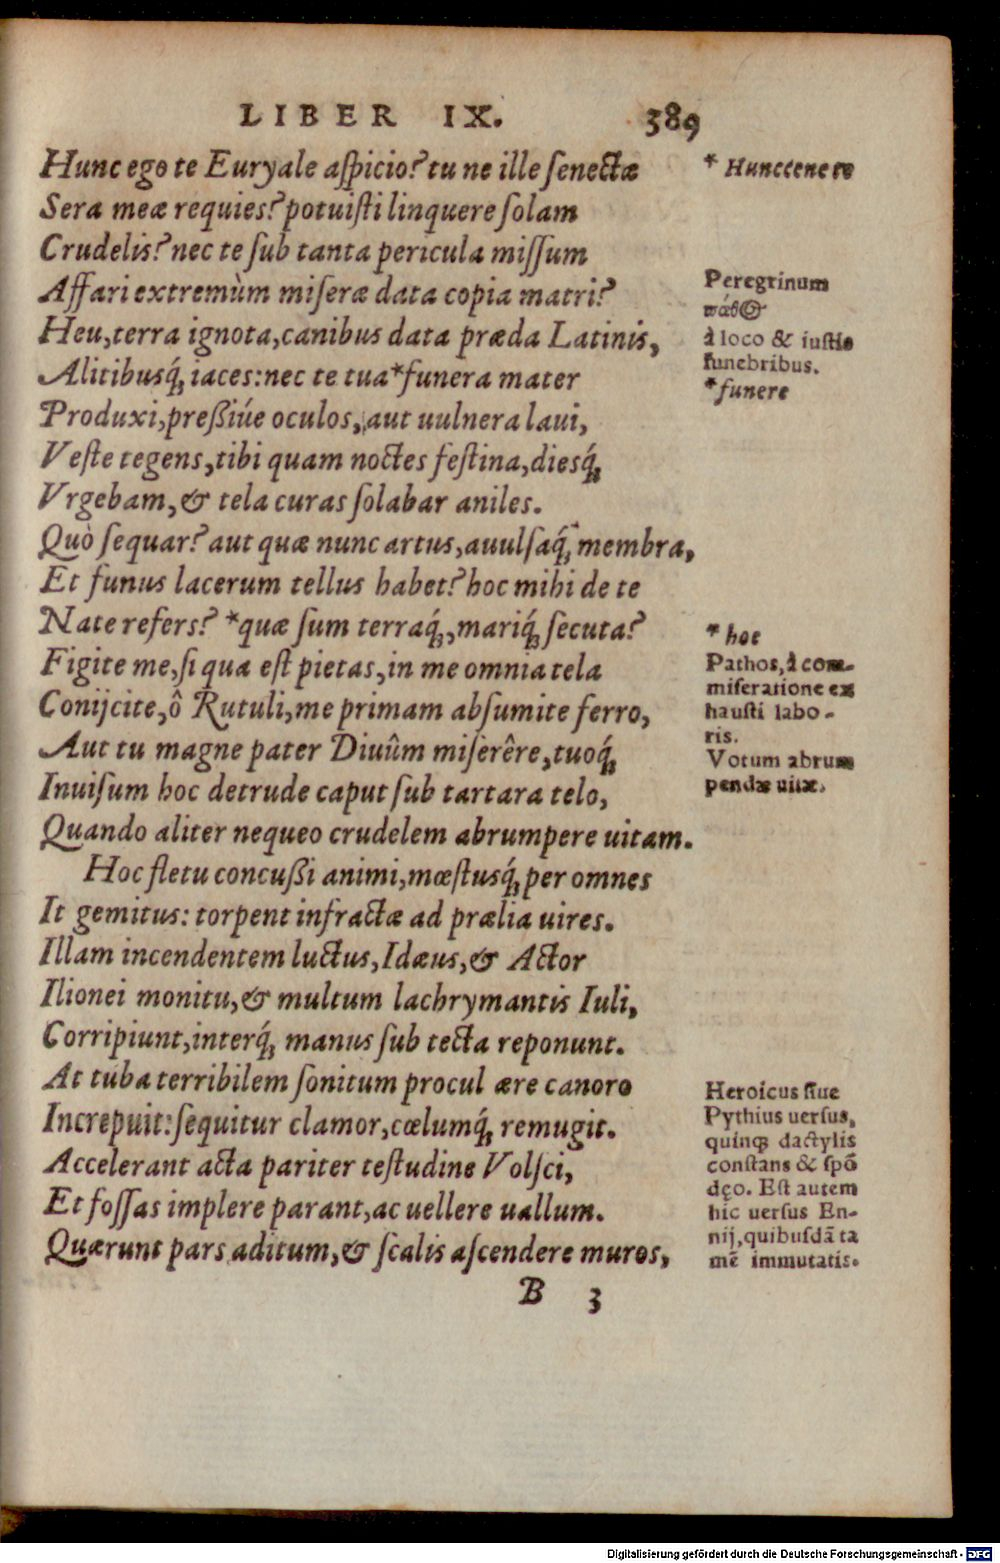 LIBER IX. 389
Hunc ego te Euryale aſpicio? tu ne ille ſenectæ
Sera meæ requies? potuiſti linquere ſolam
Crudelis? nec te ſub tanta pericula miſſum
Affari extremùm miſeræ data copia matri?
Heu, terra ignota, canibus data præda Latinis,
Alitibusq́; iaces: nec te tua *funera mater
Produxi, preßiúe oculos, aut uulnera laui,
Veſte tegens, tibi quam noctes feſtina, diesq́;
Vrgebam, & tela curas ſolabar aniles.
Quò ſequar? aut quæ nunc artus, auulſaq́; membra,
Et funus lacerum tellus habet? hoc mihi de te
Nate refers? *quæ ſum terraq́;, mariq́; ſecuta?
Figite me, ſi qua eſt pietas, in me omnia tela
Conijcite, ô Rutuli, me primam abſumite ferro,
Aut tu magne pater Diuûm miſerêre, tuoq́;
Inuiſum hoc detrude caput ſub tartara telo,
Quando aliter nequeo crudelem abrumpere uitam.
Hoc fletu concußi animi, mœſtusq́; per omnes
It gemitus: torpent infractæ ad prælia uires.
Illam incendentem luctus, Idæus, & Actor
Ilionei monitu, & multum lachrymantis Iuli,
Corripiunt, interq́; manus ſub tecta reponunt.
At tuba terribilem ſonitum procul ære canoro
Increpuit: ſequitur clamor, cœlumq́; remugit.
Accelerant acta pariter teſtudine Volſci,
Et foſſas implere parant, ac uellere uallum.
Quærunt pars aditum, & ſcalis aſcendere muros,
B 3
* Hunccene te
Peregrinum
πάθος
à loco & iuſtis
funebribus.
*funere
* hoc
Pathos, à com-
miſeratione ex
hauſti labo-
ris.
Votum abrum
pendæ uitæ.
Heroicus ſiue
Pythius uerſus,
quinq; dactylis
conſtans & ſpõ
dęo. Eſt autem
hic uerſus En-
nij, quibuſdã ta
mẽ immutatis.
Digitalisierung gefördert durch die Deutsche Forschungsgemeinschaft - DFG